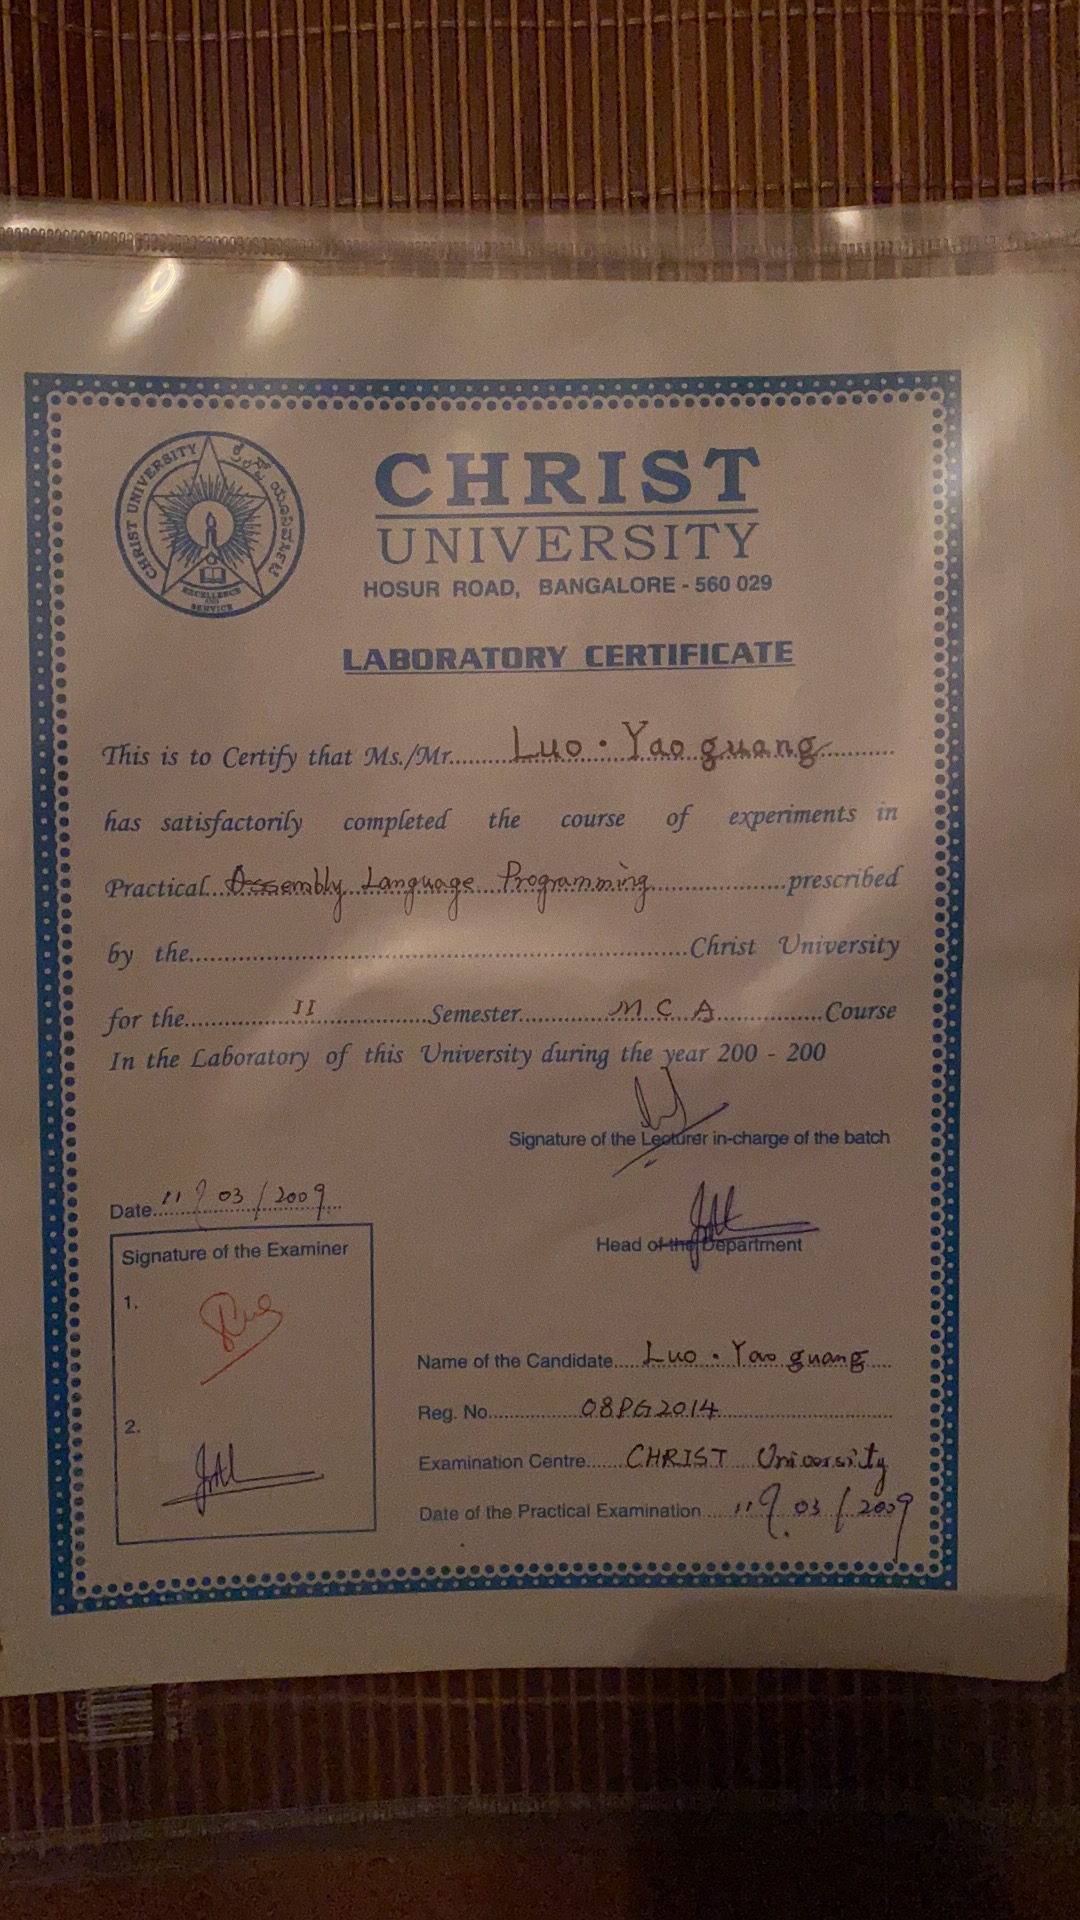 CHRIST UNIVERSITY
ಕ್ರೈಸ್ಟ್ ಯೂನಿವರ್ಸಿಟಿ
EXCELLENCE AND SERVICE
CHRIST
UNIVERSITY
HOSUR ROAD, BANGALORE - 560 029
LABORATORY CERTIFICATE
This is to Certify that Ms./Mr. Luo · Yao guang
has satisfactorily completed the course of experiments in
Practical Assembly Language Programming prescribed
by the Christ University
for the II Semester M C A Course
In the Laboratory of this University during the year 200 - 200
Signature of the Lecturer in-charge of the batch
Date 11 / 03 / 2009
Head of the Department
Signature of the Examiner
1.
2.
Name of the Candidate Luo · Yao guang
Reg. No. 08PG2014
Examination Centre CHRIST University
Date of the Practical Examination 11 / 03 / 2009